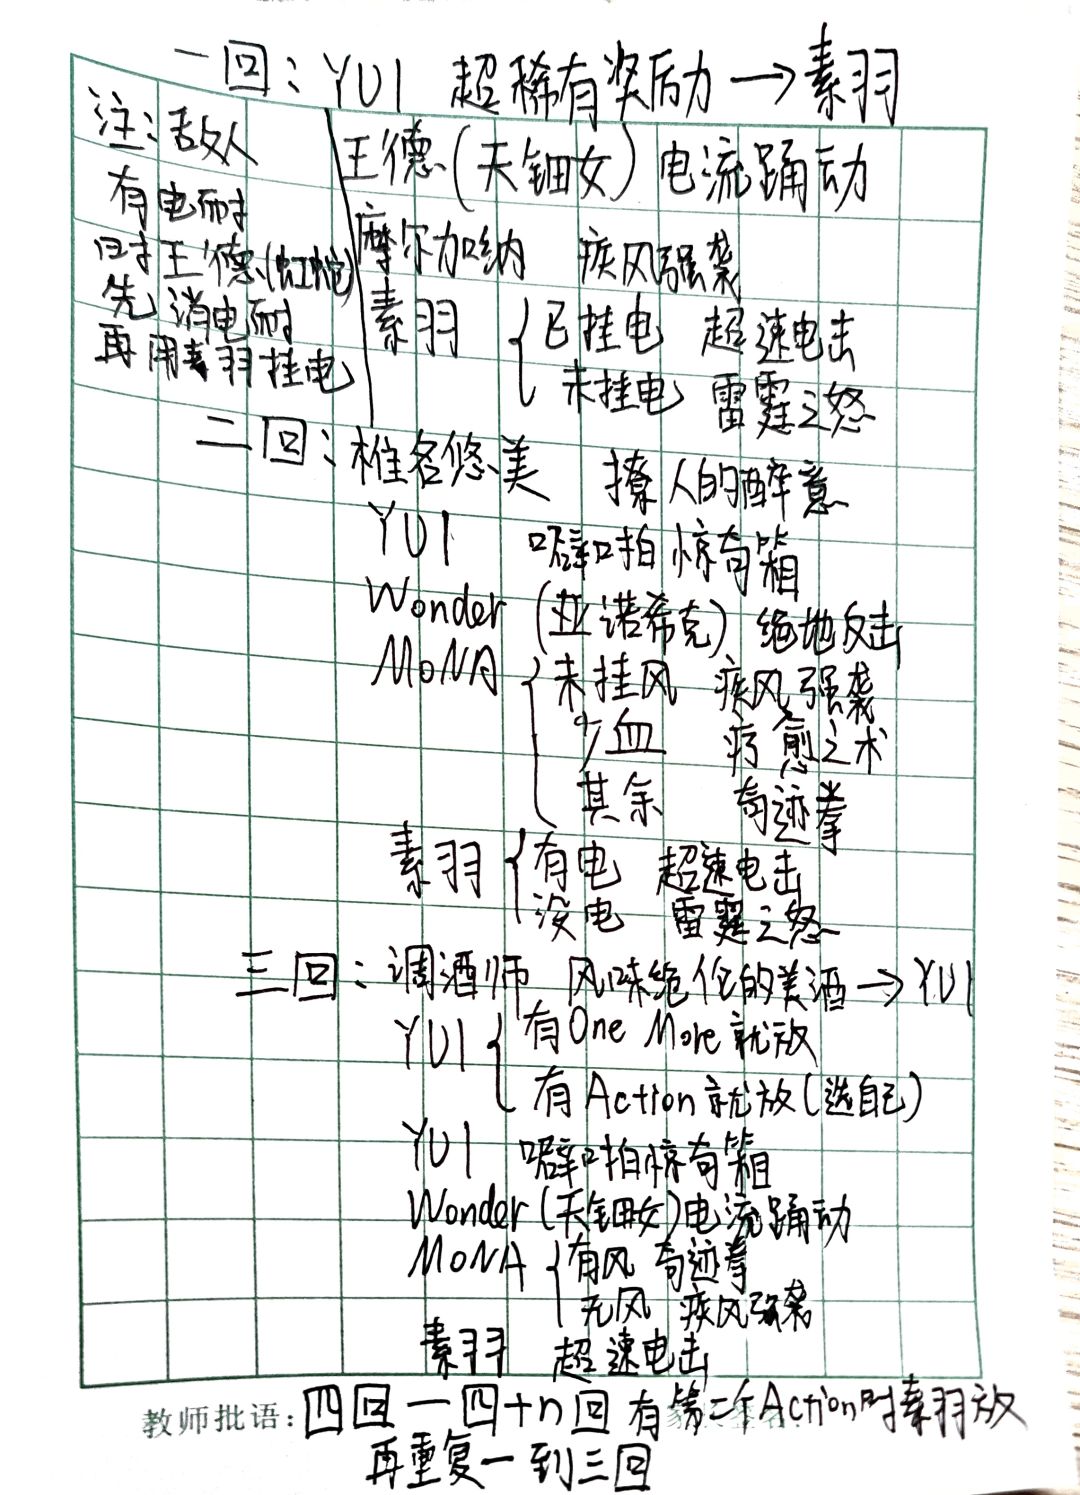 一回：YUI 超稀有奖励→素羽
注：敌人
有电耐
时王德(虹蛇)
先消电耐
再用素羽挂电
王德(天钿女) 电流踊动
摩尔加呐 疾风强袭
素羽
已挂电 超速电击
未挂电 雷霆之怒
二回：椎名悠美 撩人的醉意
YUI 噼啪惊奇箱
Wonder (亚诺希克) 绝地反击
MONA
未挂风 疾风强袭
少血 疗愈之术
其余 奇迹拳
素羽
有电 超速电击
没电 雷霆之怒
三回：调酒师 风味绝伦的美酒→YUI
YUI
有One More就放
有Action就放(选自己)
YUI 噼啪惊奇箱
Wonder(天钿女)电流踊动
MONA
有风 奇迹拳
无风 疾风强袭
素羽 超速电击
教师批语：四回一四+n回 有第二个Action时素羽放
再重复一到三回